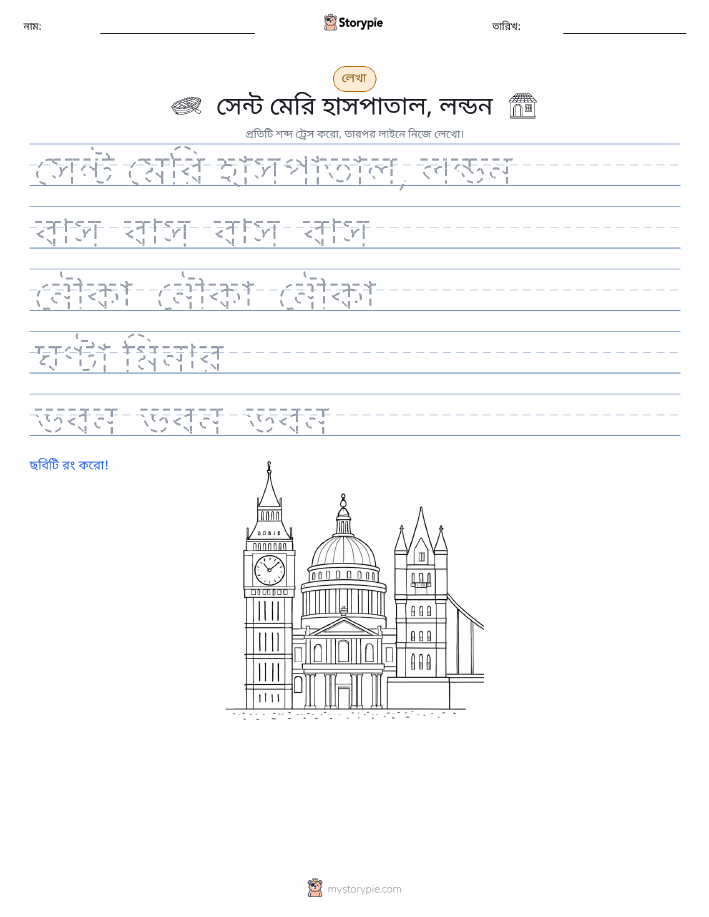 নাম:
Storypie
তারিখ:
লেখা
সেন্ট মেরি হাসপাতাল, লন্ডন
প্রতিটি শব্দ ট্রেস করো, তারপর লাইনে নিজে লেখো।
সেন্ট মেরি হাসপাতাল, লন্ডন
বাস বাস বাস বাস
নৌকা নৌকা নৌকা
ঘণ্টা মিনার
ভবন ভবন ভবন
ছবিটি রং করো!
mystorypie.com